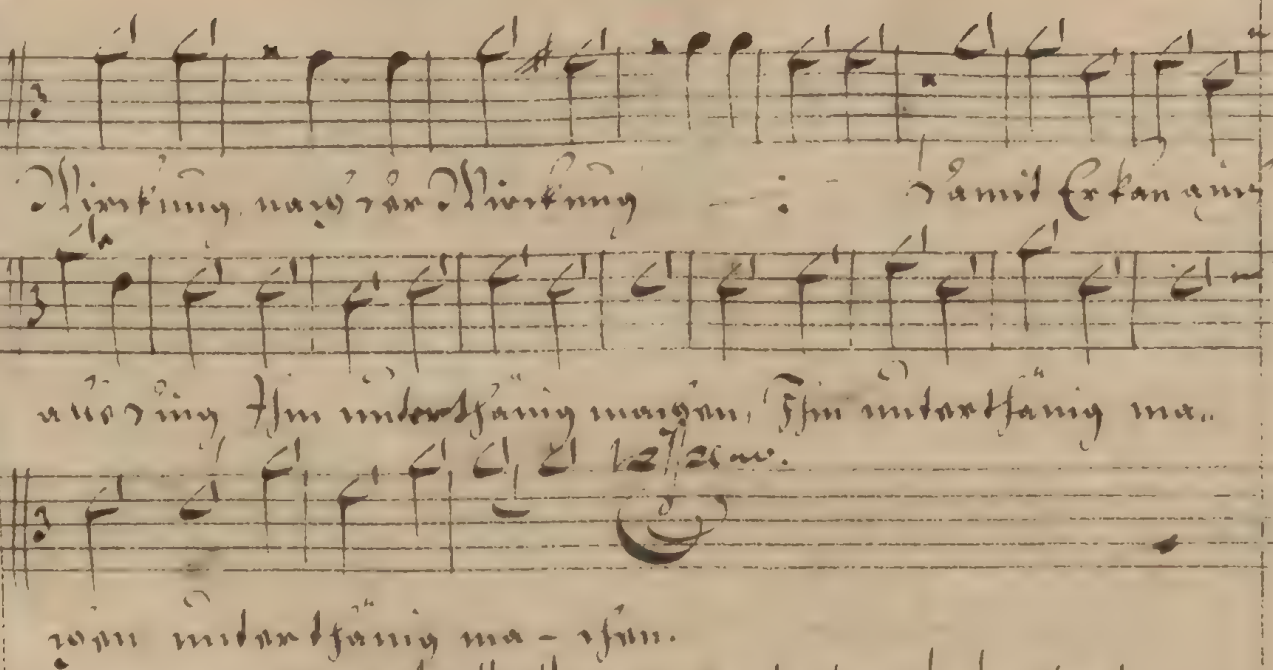 Wirckung, nach der Wirckung damit Er kan
auch sich Ihm unterthänig machen, Ihm unterthänig ma-
chen unterthänig ma - chen.